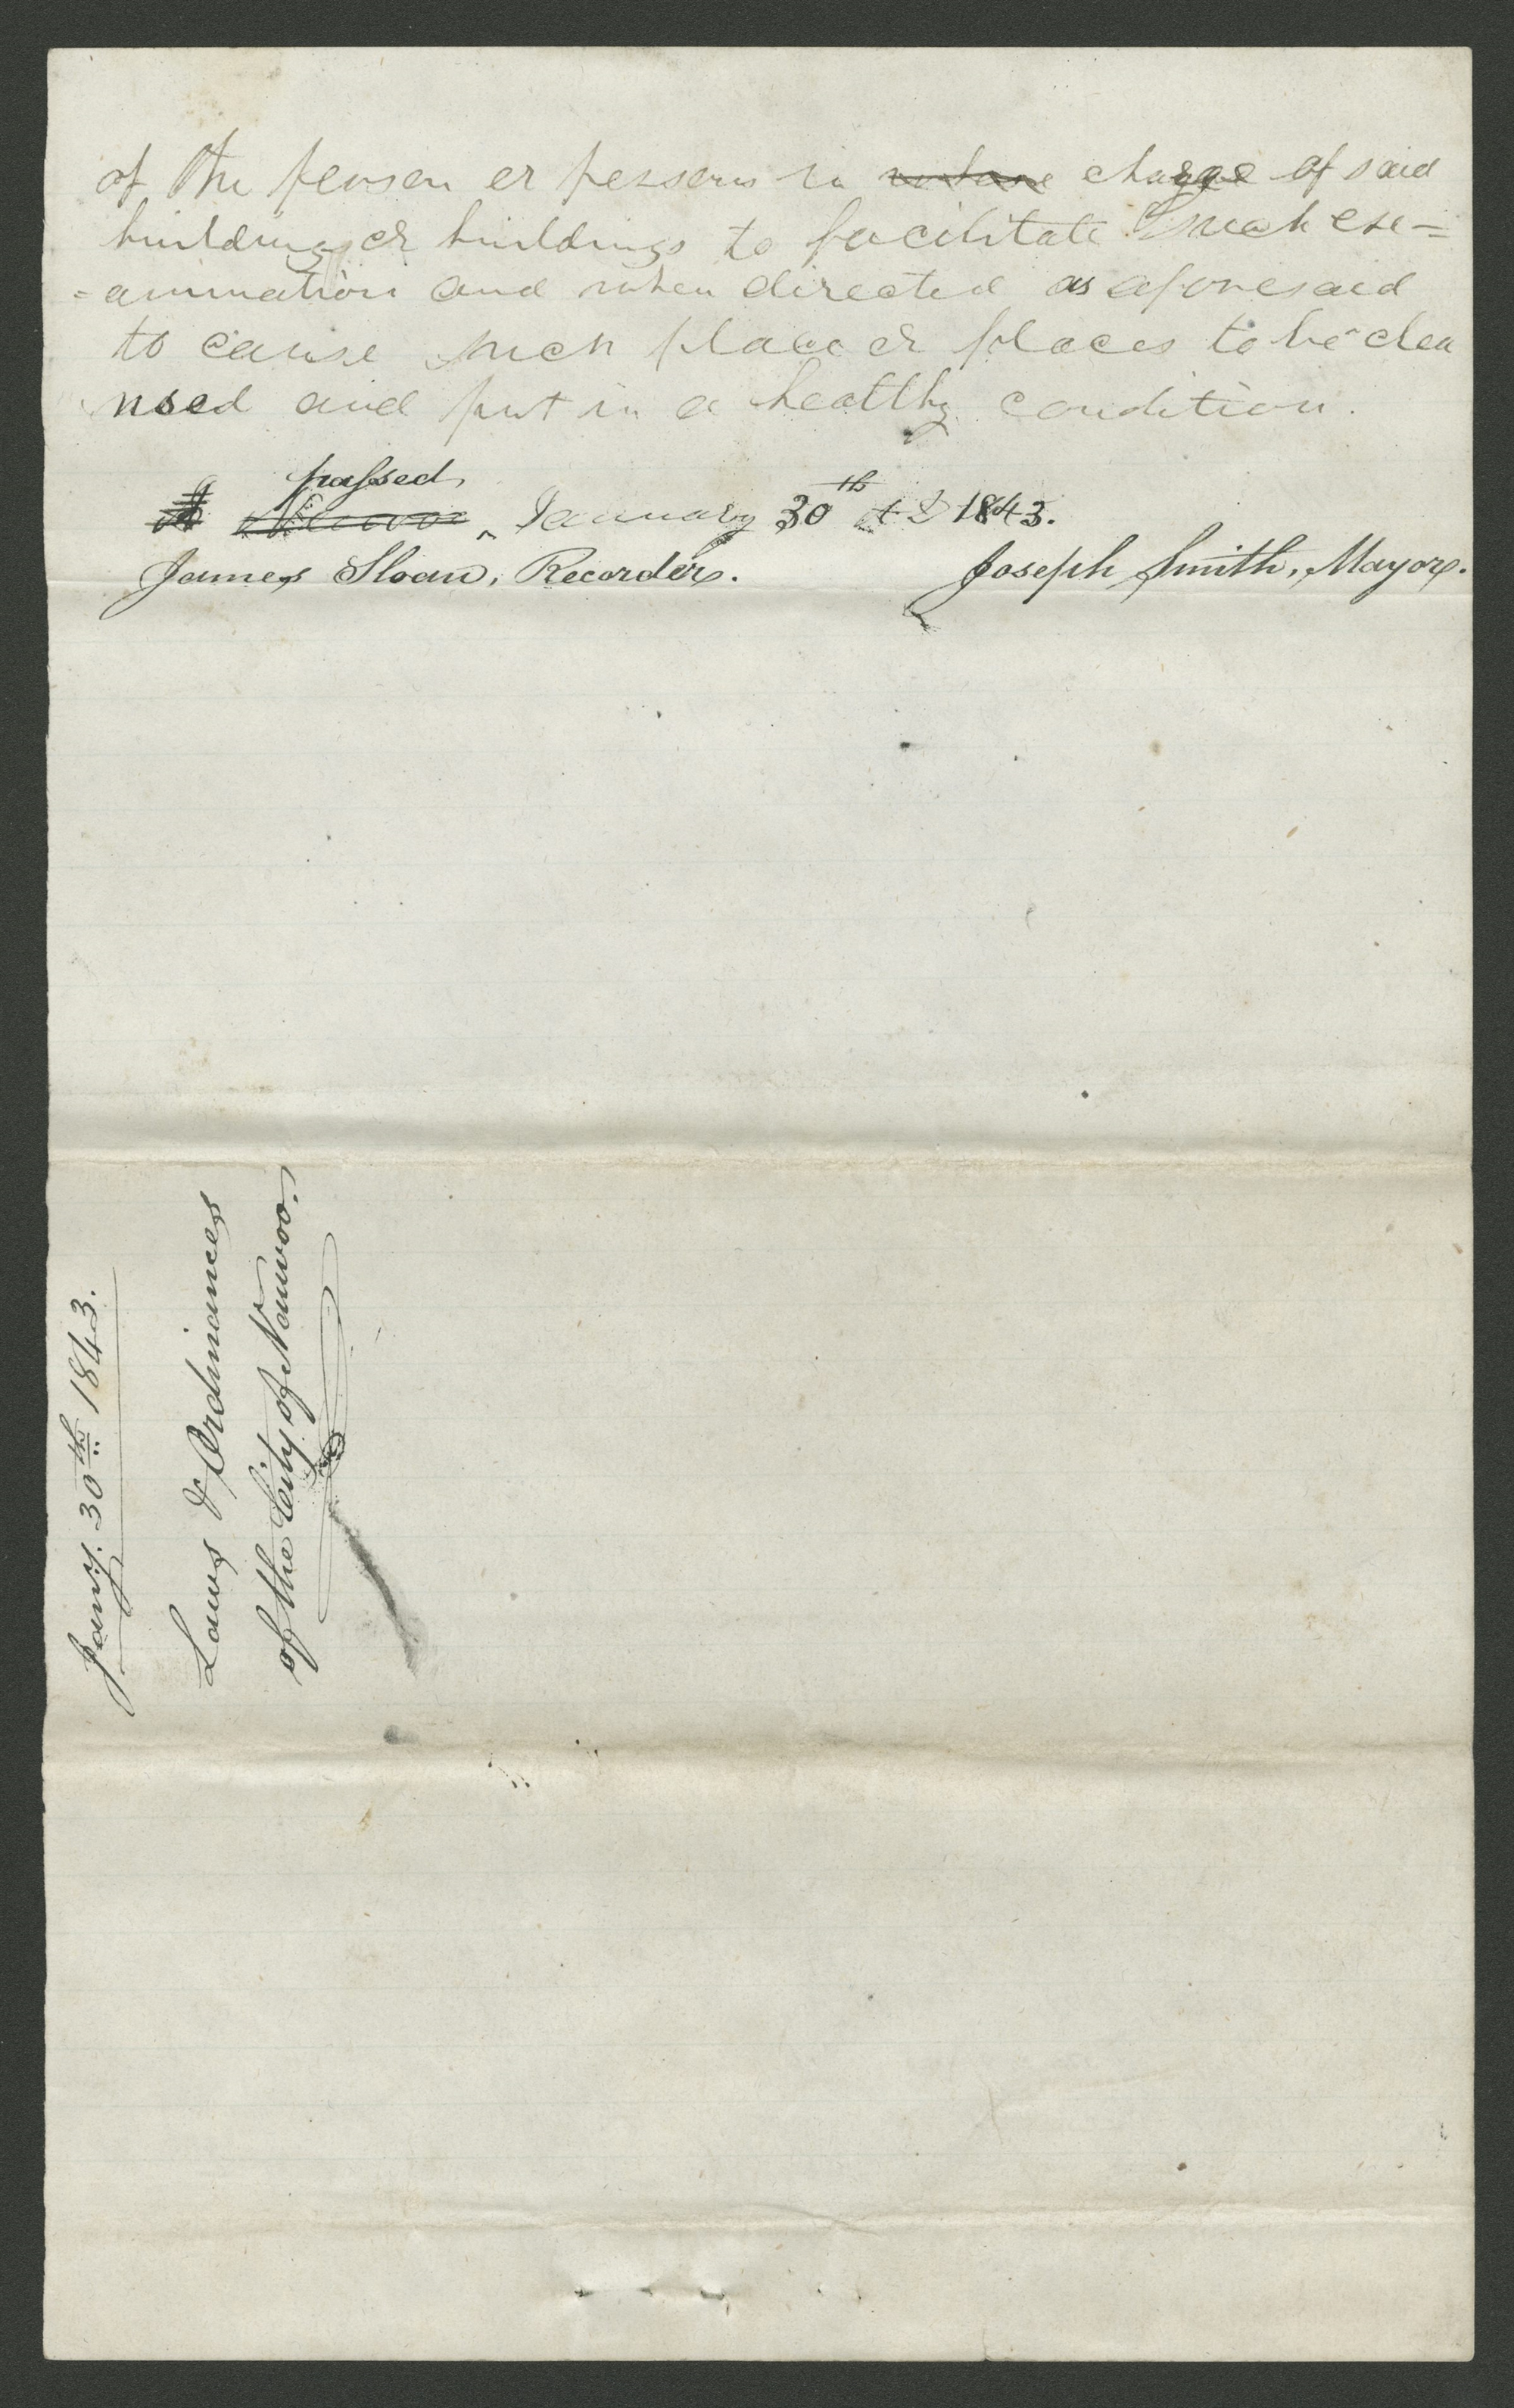 of the person or persons in charge of said
buildings or buildings to facilitate such exe=
=amination and when directed as aforesaid
to cause such place or places to be clea
nsed and put in a healthy condition.
passed,
Nauvoo ^ January 30th A D 1843.
James Sloan, Recorder. Joseph Smith, Mayor.
Jany. 30th 1843.
Laws & Ordinances
of the City of Nauvoo.